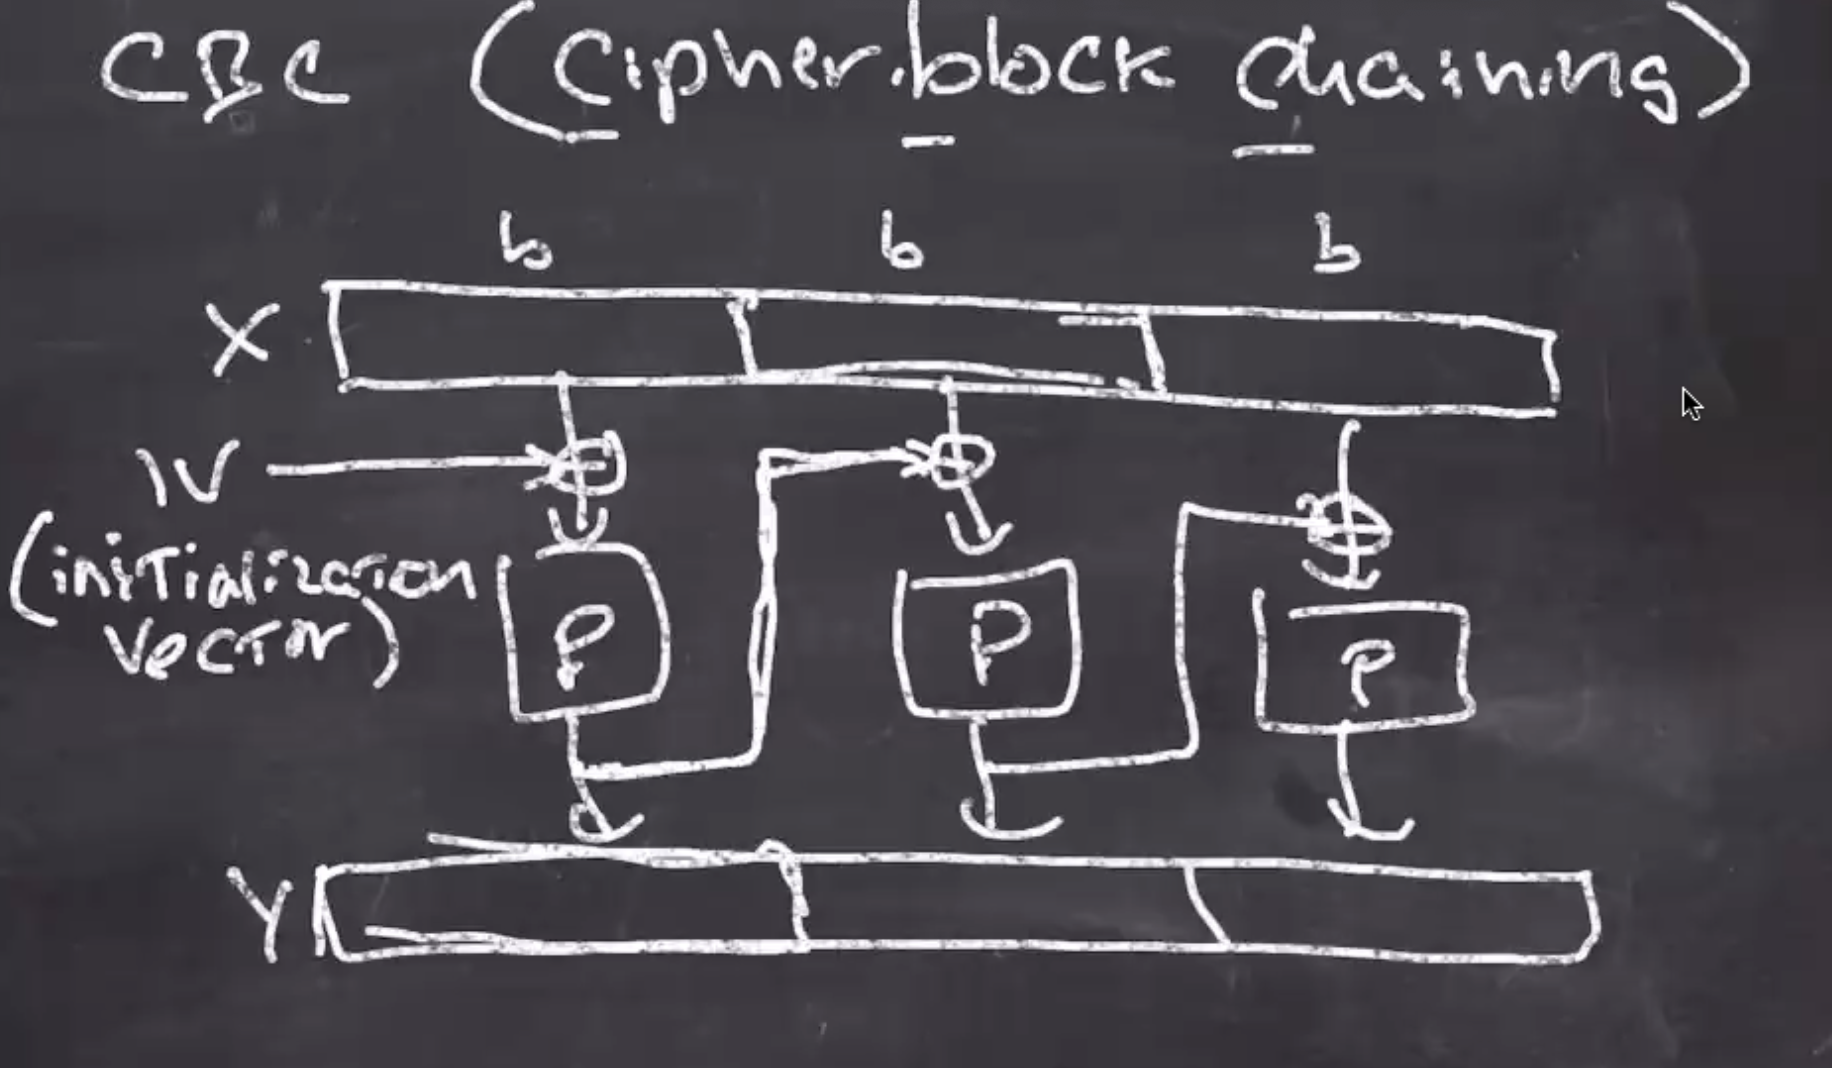 CBC (Cipher.block chaining)
b b b
X
IV
(initialization
vector)
P P P
Y